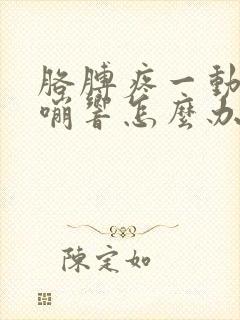 胳膊疼一動
嘣響怎麽办
陳定如